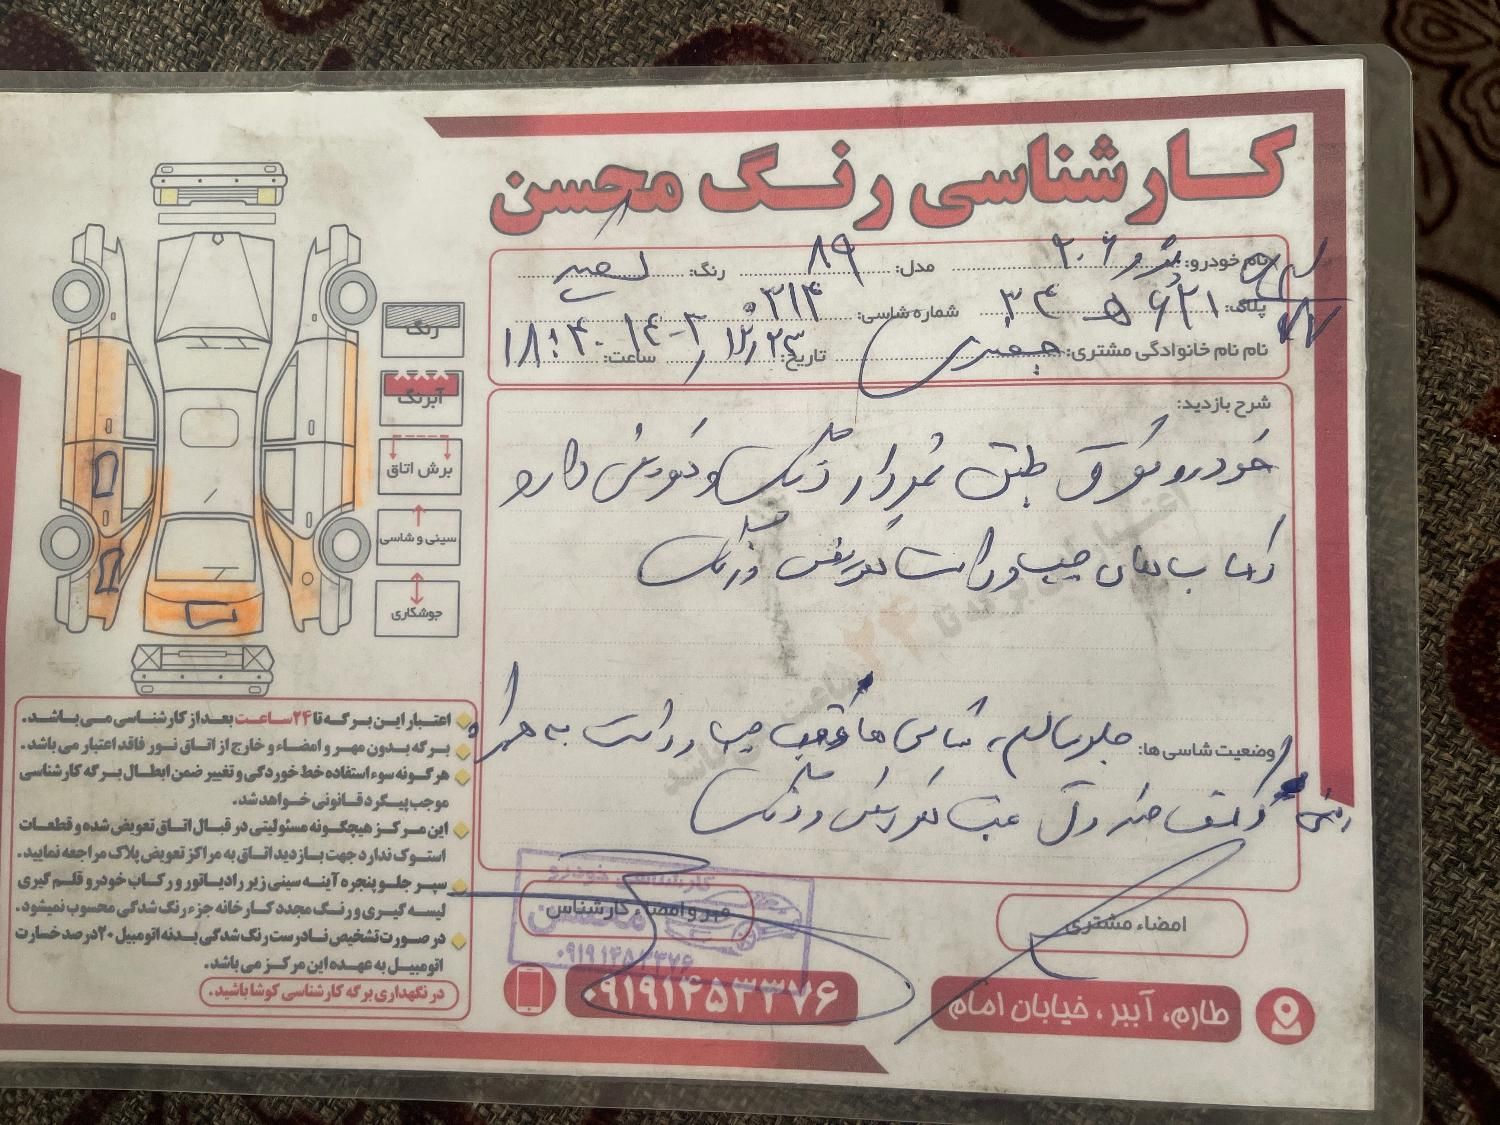 کارشناسی رنگ محسن
نام خودرو: پژو ۲۰۶ مدل: ۸۹ رنگ: سفید
پلاک: ۶۲۱ ه ۳۴ شماره شاسی: ۳۱۴
نام نام خانوادگی مشتری: تاریخ: ۱۲/۲۳ ۱۴۰۳ ساعت: ۱۸:۴۰
شرح بازدید:
خودرو فوق طبق نمودار رنگ و تعویض دارد
رکاب های چپ و راست تعویض و رنگ
وضعیت شاسی ها: جلو سالم، شاسی های عقب چپ و راست به همراه
سینی و کف صندوق عقب تعویض و رنگ
امضاء مشتری
مهر و امضاء کارشناس
کارشناسی خودرو
محسن
۰۹۱۹۱۴۵۳۳۷۶
طارم، آببر، خیابان امام
۰۹۱۹۱۴۵۳۳۷۶
رنگ
آبرنگ
برش اتاق
سینی و شاسی
جوشکاری
اعتبار این برگه تا ۲۴ساعت بعد از کارشناسی می باشد.
برگه بدون مهر و امضاء و خارج از اتاق نور فاقد اعتبار می باشد.
هرگونه سوء استفاده خط خوردگی و تغییر ضمن ابطال برگه کارشناسی
موجب پیگرد قانونی خواهد شد.
این مرکز هیچگونه مسئولیتی در قبال اتاق تعویض شده و قطعات
استوک ندارد جهت بازدید اتاق به مراکز تعویض پلاک مراجعه نمایید.
سپر جلو پنجره آینه سینی زیر رادیاتور و رکاب خودرو قلم گیری
لیسه گیری و رنگ مجدد کارخانه جزء رنگ شدگی محسوب نمیشود.
در صورت تشخیص نادرست رنگ شدگی بدنه اتومبیل ۲۰درصد خسارت
اتومبیل به عهده این مرکز می باشد.
در نگهداری برگه کارشناسی کوشا باشید.